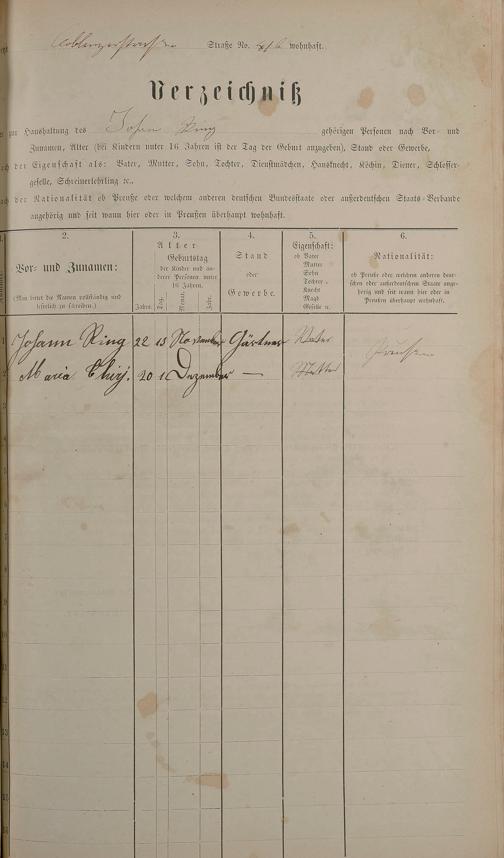 Coblenzerstrasse Straße No. wohnhaft.
Verzeichniß
zur Haushaltung des Johan Ring gehörigen Personen nach Vor- und
Zunamen, Alter (bei Kindern unter 16 Jahren ist der Tag der Geburt anzugeben), Stand oder Gewerbe,
der Eigenschaft als: Vater, Mutter, Sohn, Tochter, Dienstmädchen, Hausknecht, Köchin, Diener, Schlosser-
geselle, Schreinerlehrling ꝛc.,
der Nationalität ob Preuße oder welchem anderen deutschen Bundesstaate oder außerdeutschen Staats-Verbande
angehörig und seit wann hier oder in Preußen überhaupt wohnhaft.
2. 3. 4. 5. 6.
Vor- und Zunamen:
(Man bittet die Namen vollständig und
leserlich zu schreiben.)
Alter
Geburtstag
der Kinder und an-
derer Personen unter
16 Jahren.
Jahre. Tag. Monat. Jahr.
Stand
oder
Gewerbe.
Eigenschaft:
ob Vater
Mutter
Sohn
Tochter
Knecht
Magd
Geselle u.
Nationalität:
ob Preuße oder welchem anderen deut-
schen oder außerdeutschen Staate ange-
hörig und seit wann hier oder in
Preußen überhaupt wohnhaft.
1 Johann Ring 22 13 November Gärtner Vater Preußen
2 Maria 20 1 Dezember — Mutter